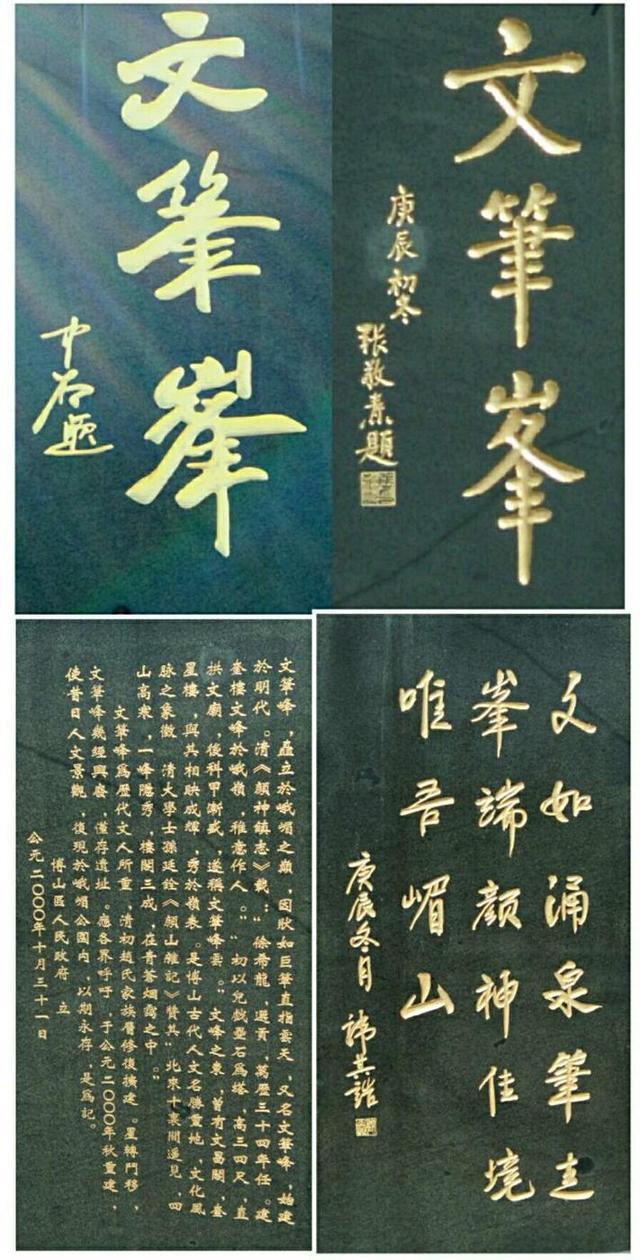 文筆峯
中石題
文筆峯
庚辰初冬
張敬燾題
文筆峰，矗立於峨嵋之巔，因狀如巨筆直指雲天，又名文筆峰，始建
於明代。清《顏神鎮志》載：“徐希龍，選貢，萬歷三十四年任。建
奎樓文峰於峨嶺，雅意作人。”“初以兒戲壘石爲塔，高三四尺，直
拱文廟，後科甲漸盛，遂稱文筆峰雲。”文峰之東，曾有文昌閣、奎
星樓，與其相映成輝，秀於嶺表。是博山古代人文名勝重地，文化風
脉之象徵。清大學士孫廷銓《顏山雜記》贊其“北來十裏間遥見，四
山高衆，一峰隱秀，樓閣三成，在青蒼烟靄之中。”
文筆峰爲歷代文人所重，清初趙氏家族屢修復擴建。星轉鬥移，
文筆峰幾經興廢，僅存遺址。應各界呼吁，于公元二〇〇〇年秋重建，
使昔日人文景觀，復現於峨嵋公園内，以期永存，是爲記。
博山區人民政府 立
公元二〇〇〇年十月三十一日
文如涌泉筆走
峯端顏神佳境
唯吾嵋山
庚辰冬月